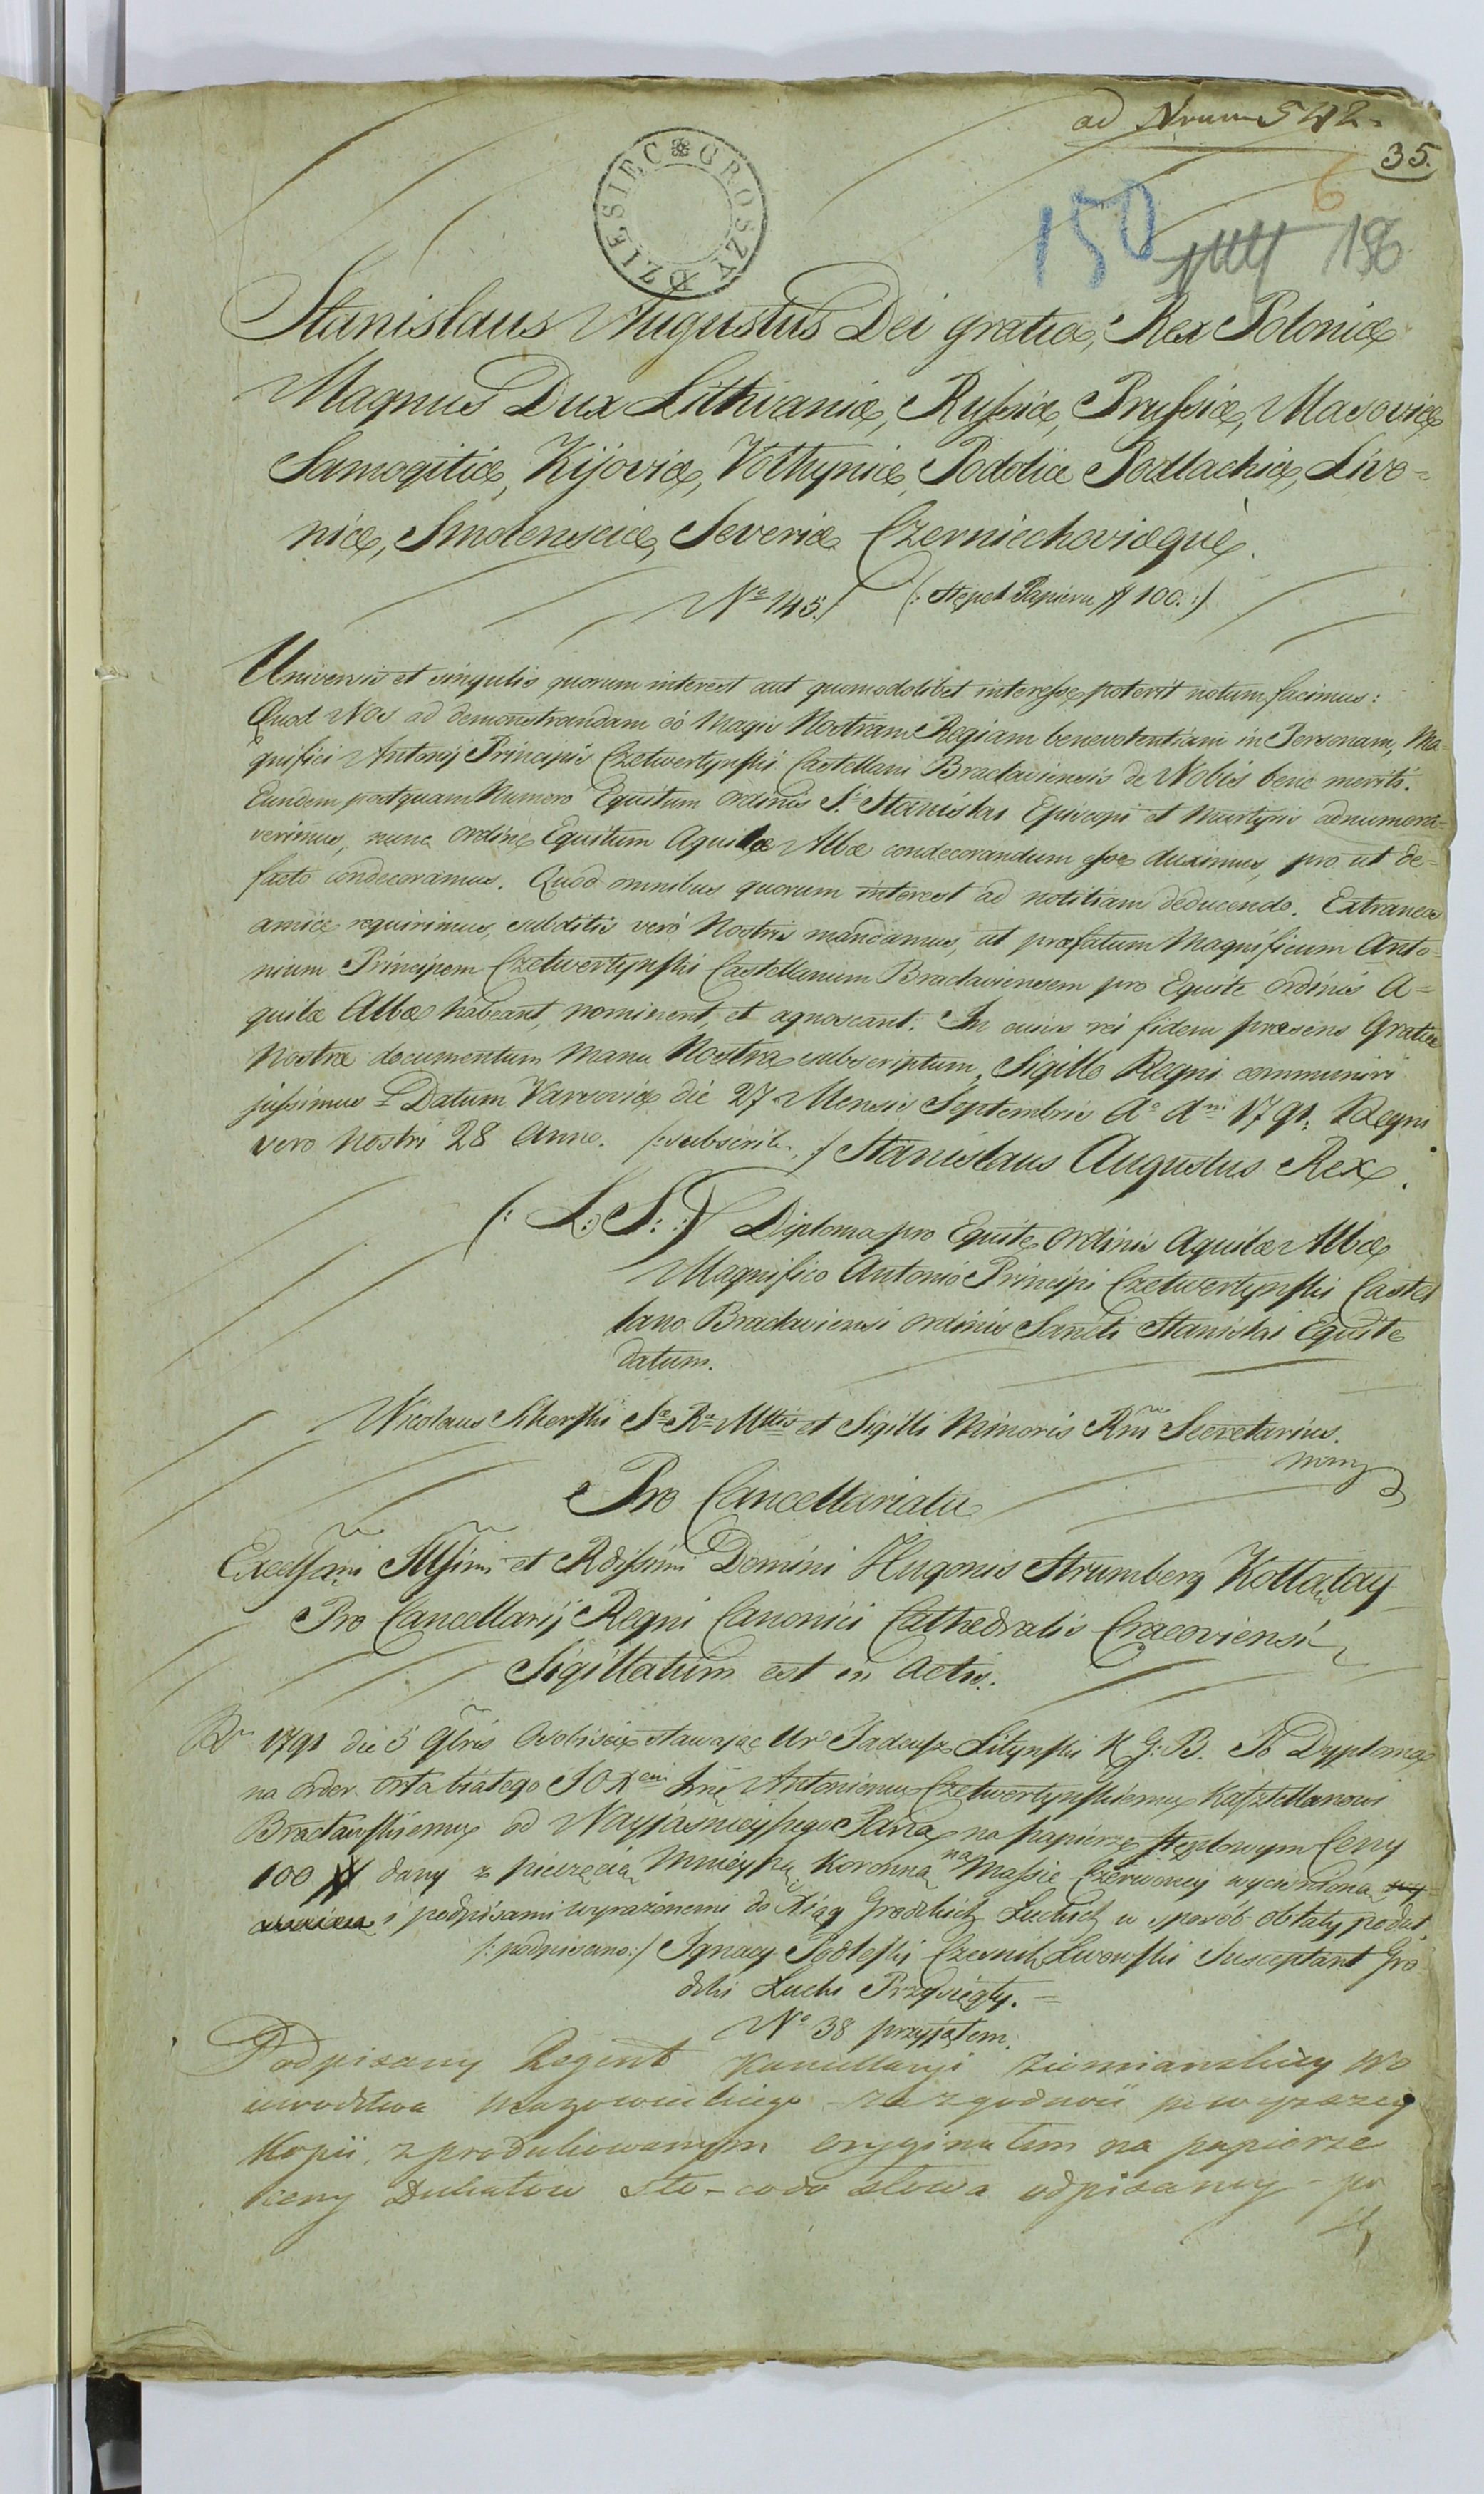 ad Nrum 542.
35.
6
150 156
DZIESIĘC GROSZY
Stanislaus Augustus Dei gratia, Rex Poloniæ
Magnus Dux Lithvaniæ, Rufsiæ, Prufsiæ, Masoviæ
Samogitiæ, Kijoviæ, Volhyniæ, Podoliæ Podlachiæ, Livo=
niæ, Smolensciæ, Severiæ Czerniechoviæquè.
No 145./ (: Stępel Papieru # 100. :)
Universis et singulis quorum interest aut quomodolibet interesse poterit notum facimus:
Quod Nos ad demonstrandam eò magis Nostram Regiam benevolentiam in Personam, Ma=
gnifici Antonij Principis Czetwertynski Castellani Braclaviensis de Nobis bene meriti.
Eundem postquam Numero Equitum Ordinis S. Stanislai Episcopi et Martyris adnumera=
verimus, nunc Ordine Equitum Aquilæ Albæ condecorandum esse duximus, pro ut de=
facto condecoramus. Quod omnibus quorum interest ad notitiam deducendo. Extraneos
amicè requirimus, subditis verò Nostris mandamus, ut præfatum Magnificum Anto=
nium Principem Czetwertynski Castellanum Braclaviensem pro Equite Ordinis A=
quilæ Albæ habeant, nominent, et agnoscant. In cuius rei fidem præsens Gratiæ
Nostræ documentum Manu Nostra subscriptum, Sigillo Regni communiri
jussimus = Datum Varsoviæ die 27 Mensis Septembris Ao Dni 1791. Regni
vero Nostri 28 Anno. /: subscrib. :/ Stanislaus Augustus Rex.
(: L: S: :) Diploma pro Equite Ordinis Aquilæ Albæ
Magnifico Antonio Principi Czetwertynski Castel
lano Braclaviensi Ordinis Sancti Stanislai Equite
datum.
Nicolaus Sikorski Sæ Ræ Mttis et Sigilli Minoris Rni Secretarius.
mmp
Pro Cancellariatu
Excellsmi Illsimi et Rdissimi Domini Hugonis Strumberg Kołłątay
Pro Cancellarij Regni Canonici Cathedralis Cracoviensi
Sigillatum est in Actis.
Ru 1791 die 5 9bris Osobiscie stawaiąc Ur Tadeusz Lityński K G: B. To Dyploma
na order Orła białego JO Xciu Jmę Antoniemu Czetwertyńskiemu Kasztellanowi
Bracławskiemu od Nayjaśnieyszego Pana na papierze stęplowym Ceny
100 # dany z pieczęcią Mnieyszą Koronną na Massie Czerwoney wycisnioną
i podpisami wyrażonemi do Xiąg Grodzkich Łuckich w sposób oblaty podał
/: podpisano :/ Ignacy Podleski Czesnik Lwowski Susceptant Gro
dzki Łucki Przysięgły. =
No 38 przyjętem.
Podpisany Regent Kancellaryi Ziemiańskiey Wo
iewodztwa Mazowieckiego za zgodność powyższey
Kopii, z produkowanym oryginałem na papierze
ceny Dukatów sto - co do słowa odpisaney - po